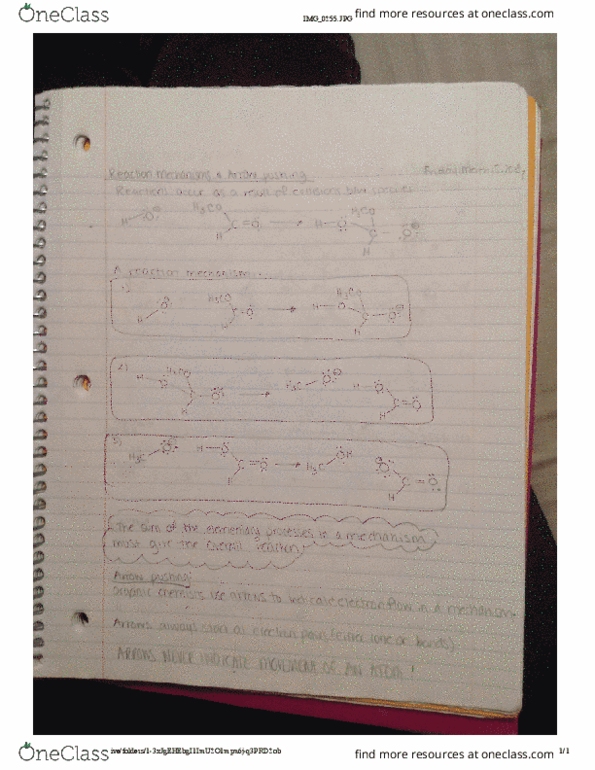 OneClass
IMG_0255.JPG
find more resources at oneclass.com
Reaction mechanisms & Arrow pushing
Reactions occur as a result of collisions btw species
H₃CO
H O C = O H O C O
H₃CO
H
H
A reaction mechanism...
1)
H₃CO
H O C = O H O C O
H₃CO
H
H
2)
H O C O H₃C O H O C = O
H
H
3)
H₃C O H O C = O H₃C OH O C = O
H
H
The sum of the elementary processes in a mechanism
must give the overall reaction
Arrow pushing:
Organic chemists use arrows to indicate electron flow in a mechanism.
Arrows always start at electron pairs (either lone or bonds)
ARROWS NEVER INDICATE MOVEMENT OF AN ATOM!
OneClass
1/1
find more resources at oneclass.com